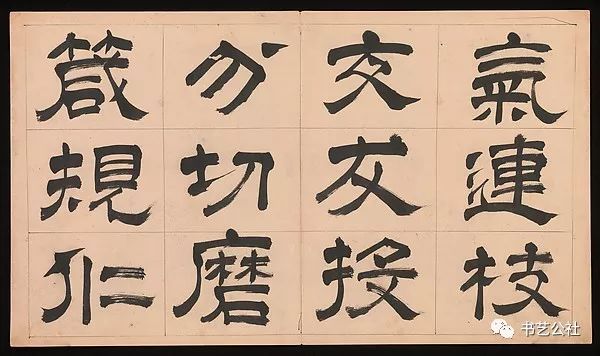 氣連枝
交友投
分切磨
箴規仁
书艺公社